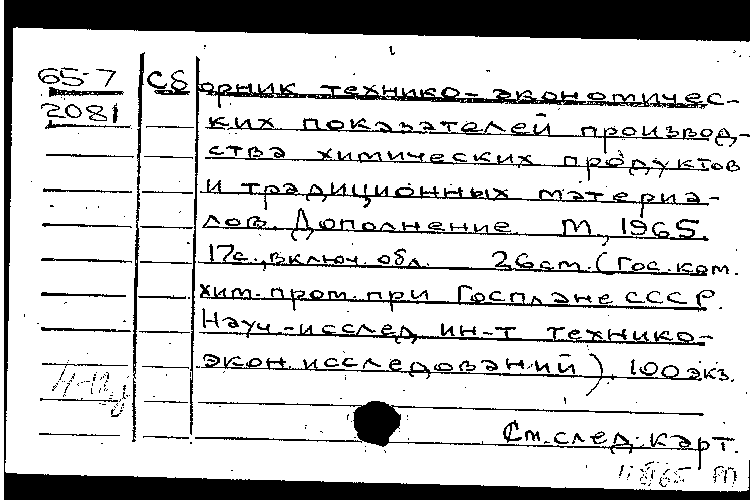 65-7 Сборник технико-экономичес-
2081 ких показателей производ-
ства химических продуктов
и традиционных материа-
лов. Дополнение М., 1965.
17с., включ. обл. 26см. (Гос. ком.
хим. пром. при Госплане СССР.
Науч.-исслед. ин-т технико-
экон. исследований). 100 экз.
См. след. карт.